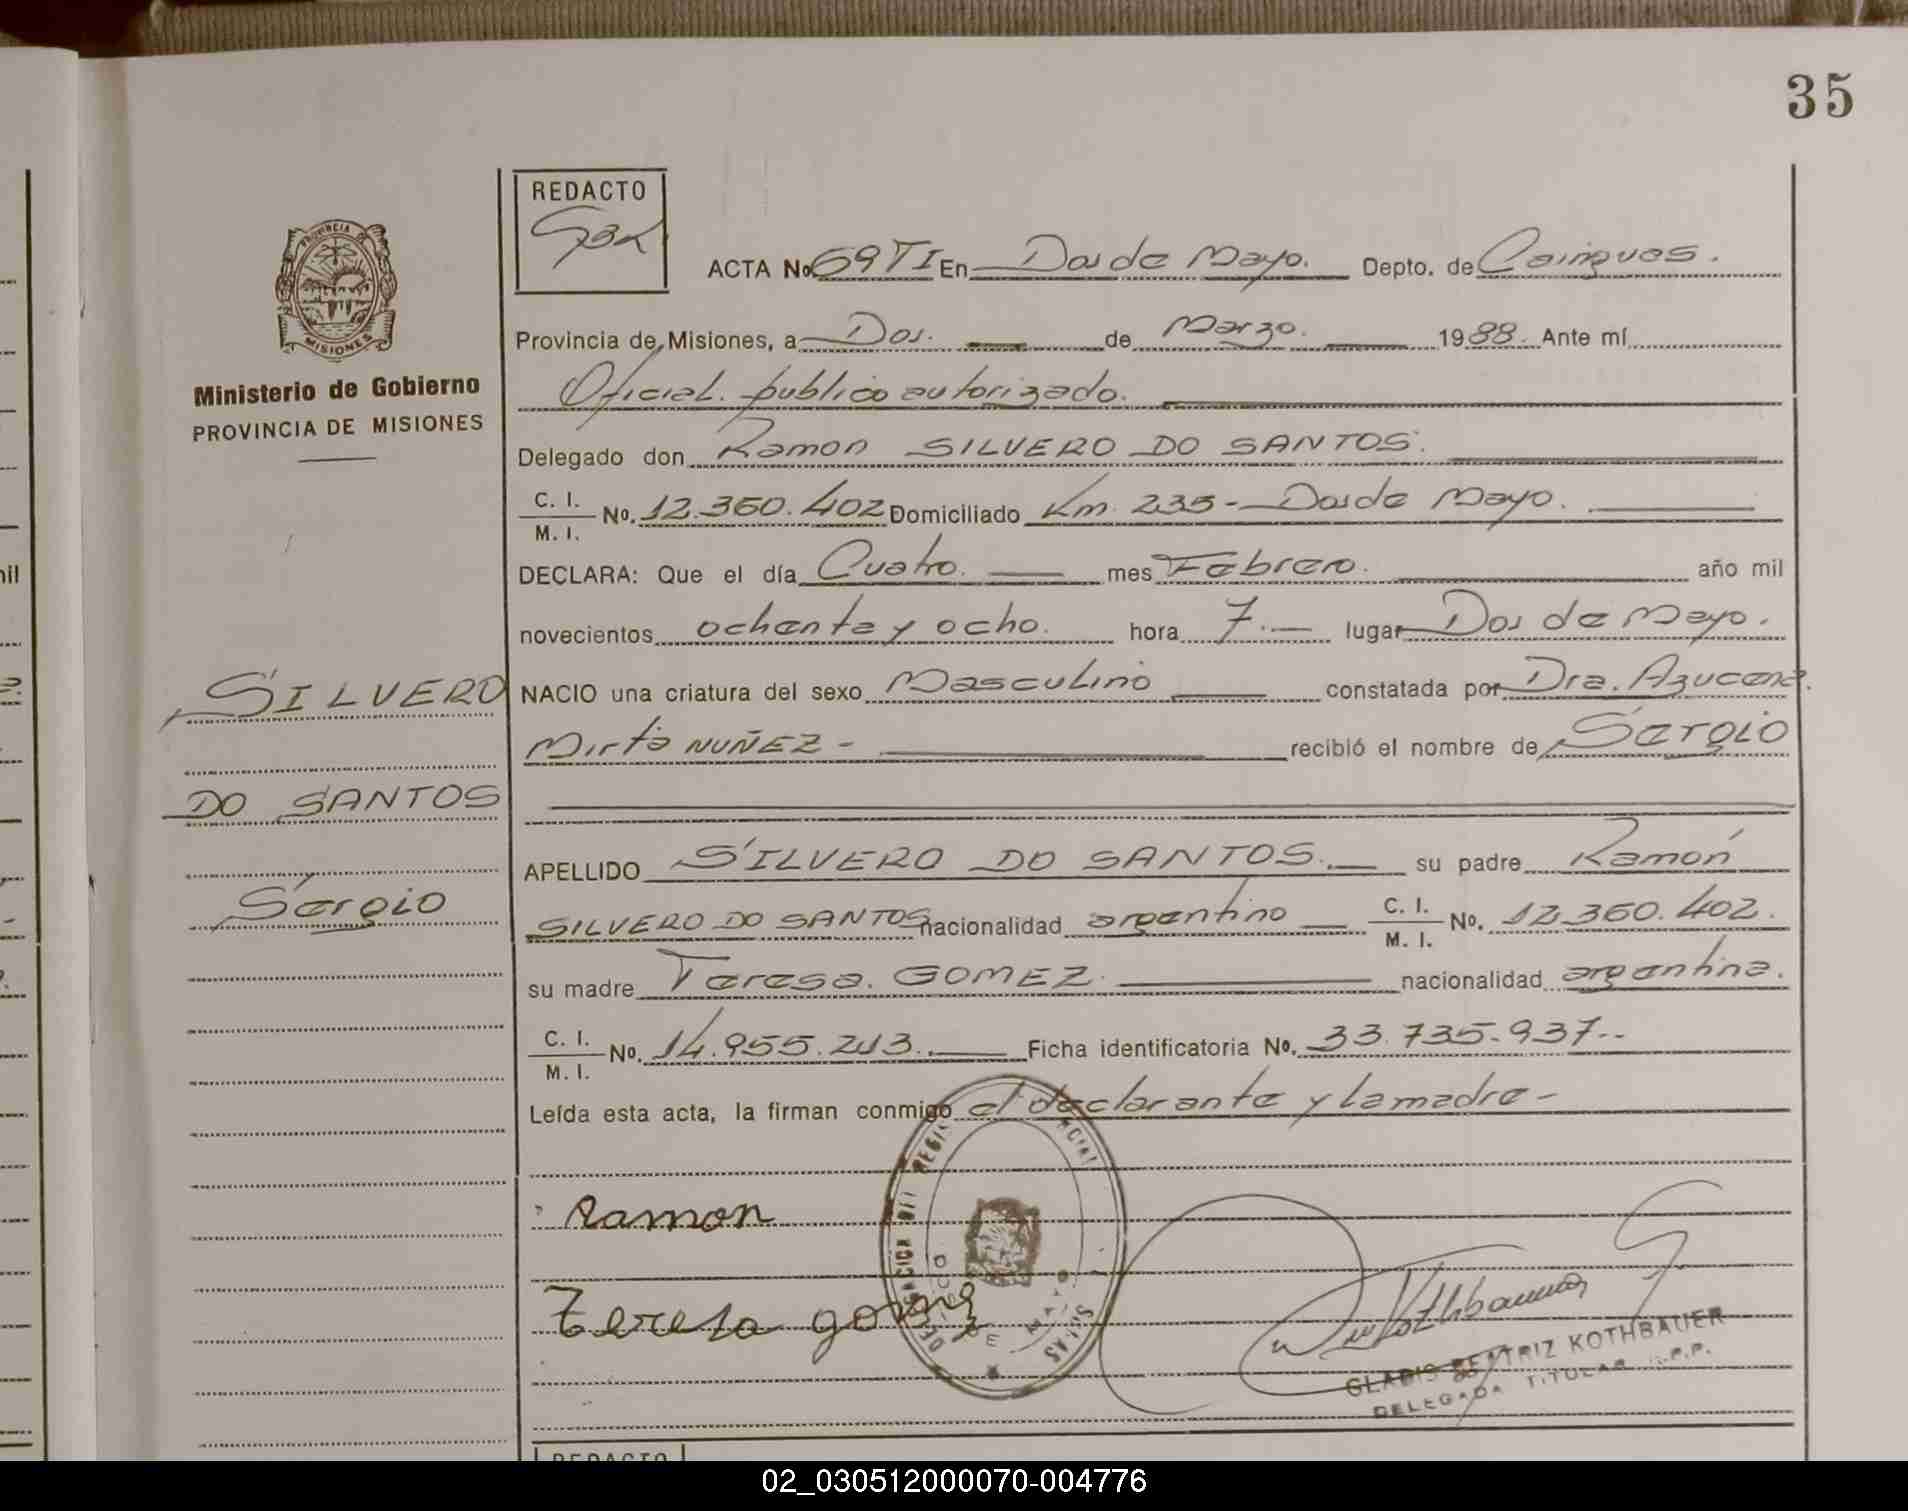 35
REDACTO
GBK
ACTA No. 69TI En Dos de Mayo. Depto. de Cainguas.
Provincia de Misiones, a Dos. de Marzo. 1988. Ante mí
Oficial. publico autorizado.
Delegado don Ramon SILVERO DO SANTOS.
C. I.
M. I. No. 12.360.402 Domiciliado Km. 235 - Dos de Mayo.
DECLARA: Que el día Cuatro. mes Febrero. año mil
novecientos ochenta y ocho. hora 7.- lugar Dos de Mayo.
NACIO una criatura del sexo Masculino constatada por Dra. Azucena.
Mirta NUÑEZ - recibió el nombre de Sergio
APELLIDO SILVERO DO SANTOS.- su padre Ramón
SILVERO DO SANTOS nacionalidad argentino C. I.
M. I. No. 12.360.402.
su madre Teresa. GOMEZ. nacionalidad argentina.
C. I.
M. I. No. 14.955.213. Ficha identificatoria No. 33.735.937..
Leída esta acta, la firman conmigo el declarante y la madre -
Ramon
Teresa gomez
PROVINCIA DE
MISIONES
Ministerio de Gobierno
PROVINCIA DE MISIONES
SILVERO
DO SANTOS
Sergio
DE MAYO
GLADIS BEATRIZ KOTHBAUER
DELEGADA TITULAR R.P.P.
REDACTO
02_030512000070-004776